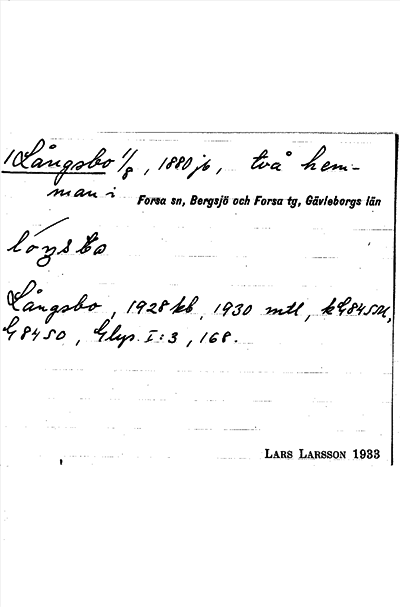 1 Långsbo 1/8, 1880 jb, två hem-
man i Forsa sn, Bergsjö och Forsa tg, Gävleborgs län
Långsbo, 1928 kb, 1930 mtl,
G 84 SO, Glyp. I:3, 168.
LARS LARSSON 1933